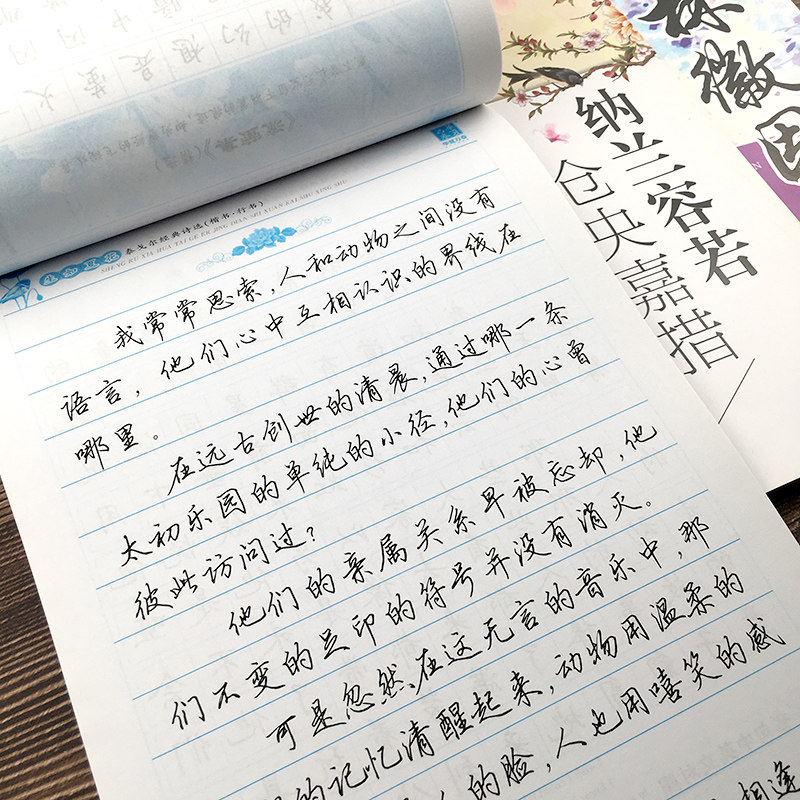 泰戈尔经典诗选(楷书·行书)
SHENG RU XIA HUA TAI GE ER JING DIAN SHI XUAN KAI SHU XING SHU
我常常思索,人和动物之间没有
语言,他们心中互相认识的界线在
哪里。
在远古创世的清晨,通过哪一条
太初乐园的单纯的小径,他们的心曾
彼此访问过?
他们的亲属关系早被忘却,他
们不变的足印的符号并没有消灭。
可是忽然在这无言的音乐中,那
的记忆清醒起来,动物用温柔的
的脸,人也用嘻笑的感
相逢
纳兰容若
仓央嘉措
徽因